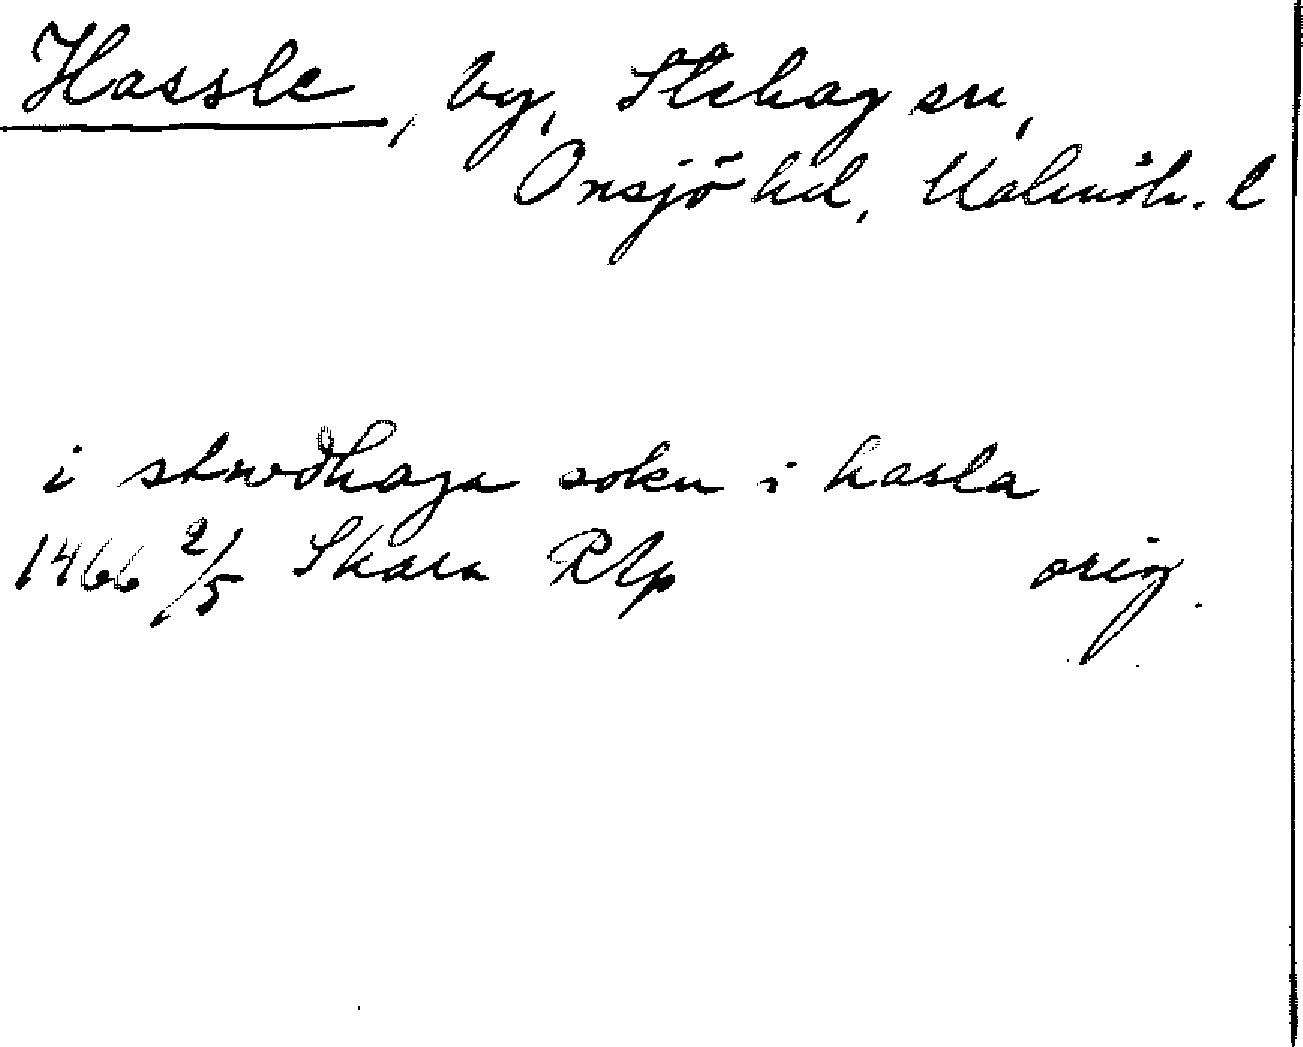 Hassle, by, Stehag sn,
Onsjö hd, Malmöh. l
i stwdhaga sokn i hasla
1466 2/5 Skara RAp orig.